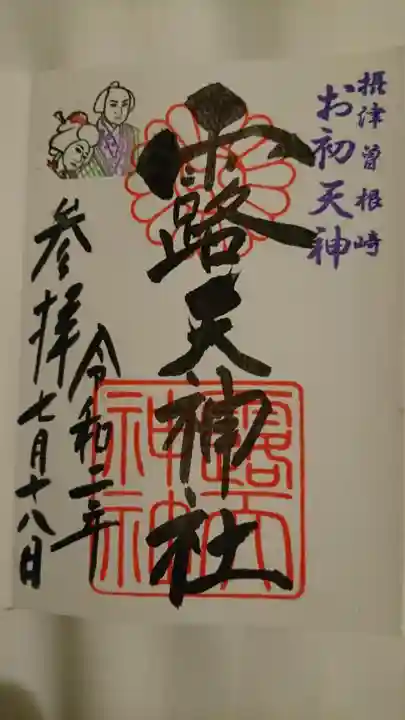 摂津曽根崎
お初天神
露天神社
令和二年
七月十八日
参拝
露天
神社